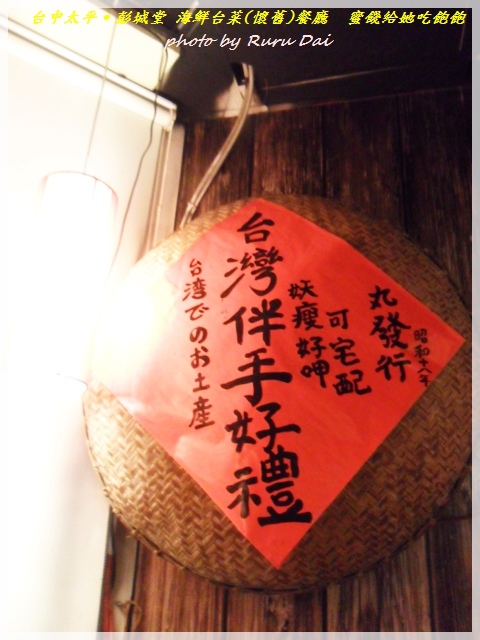 台中太平•彭城堂 海鮮台菜(懷舊)餐廳 蜜餞給她吃飽飽
photo by Ruru Dai
昭和十八年
丸發行
可宅配
妖瘦好呷
台灣伴手好禮
台湾でのお土産